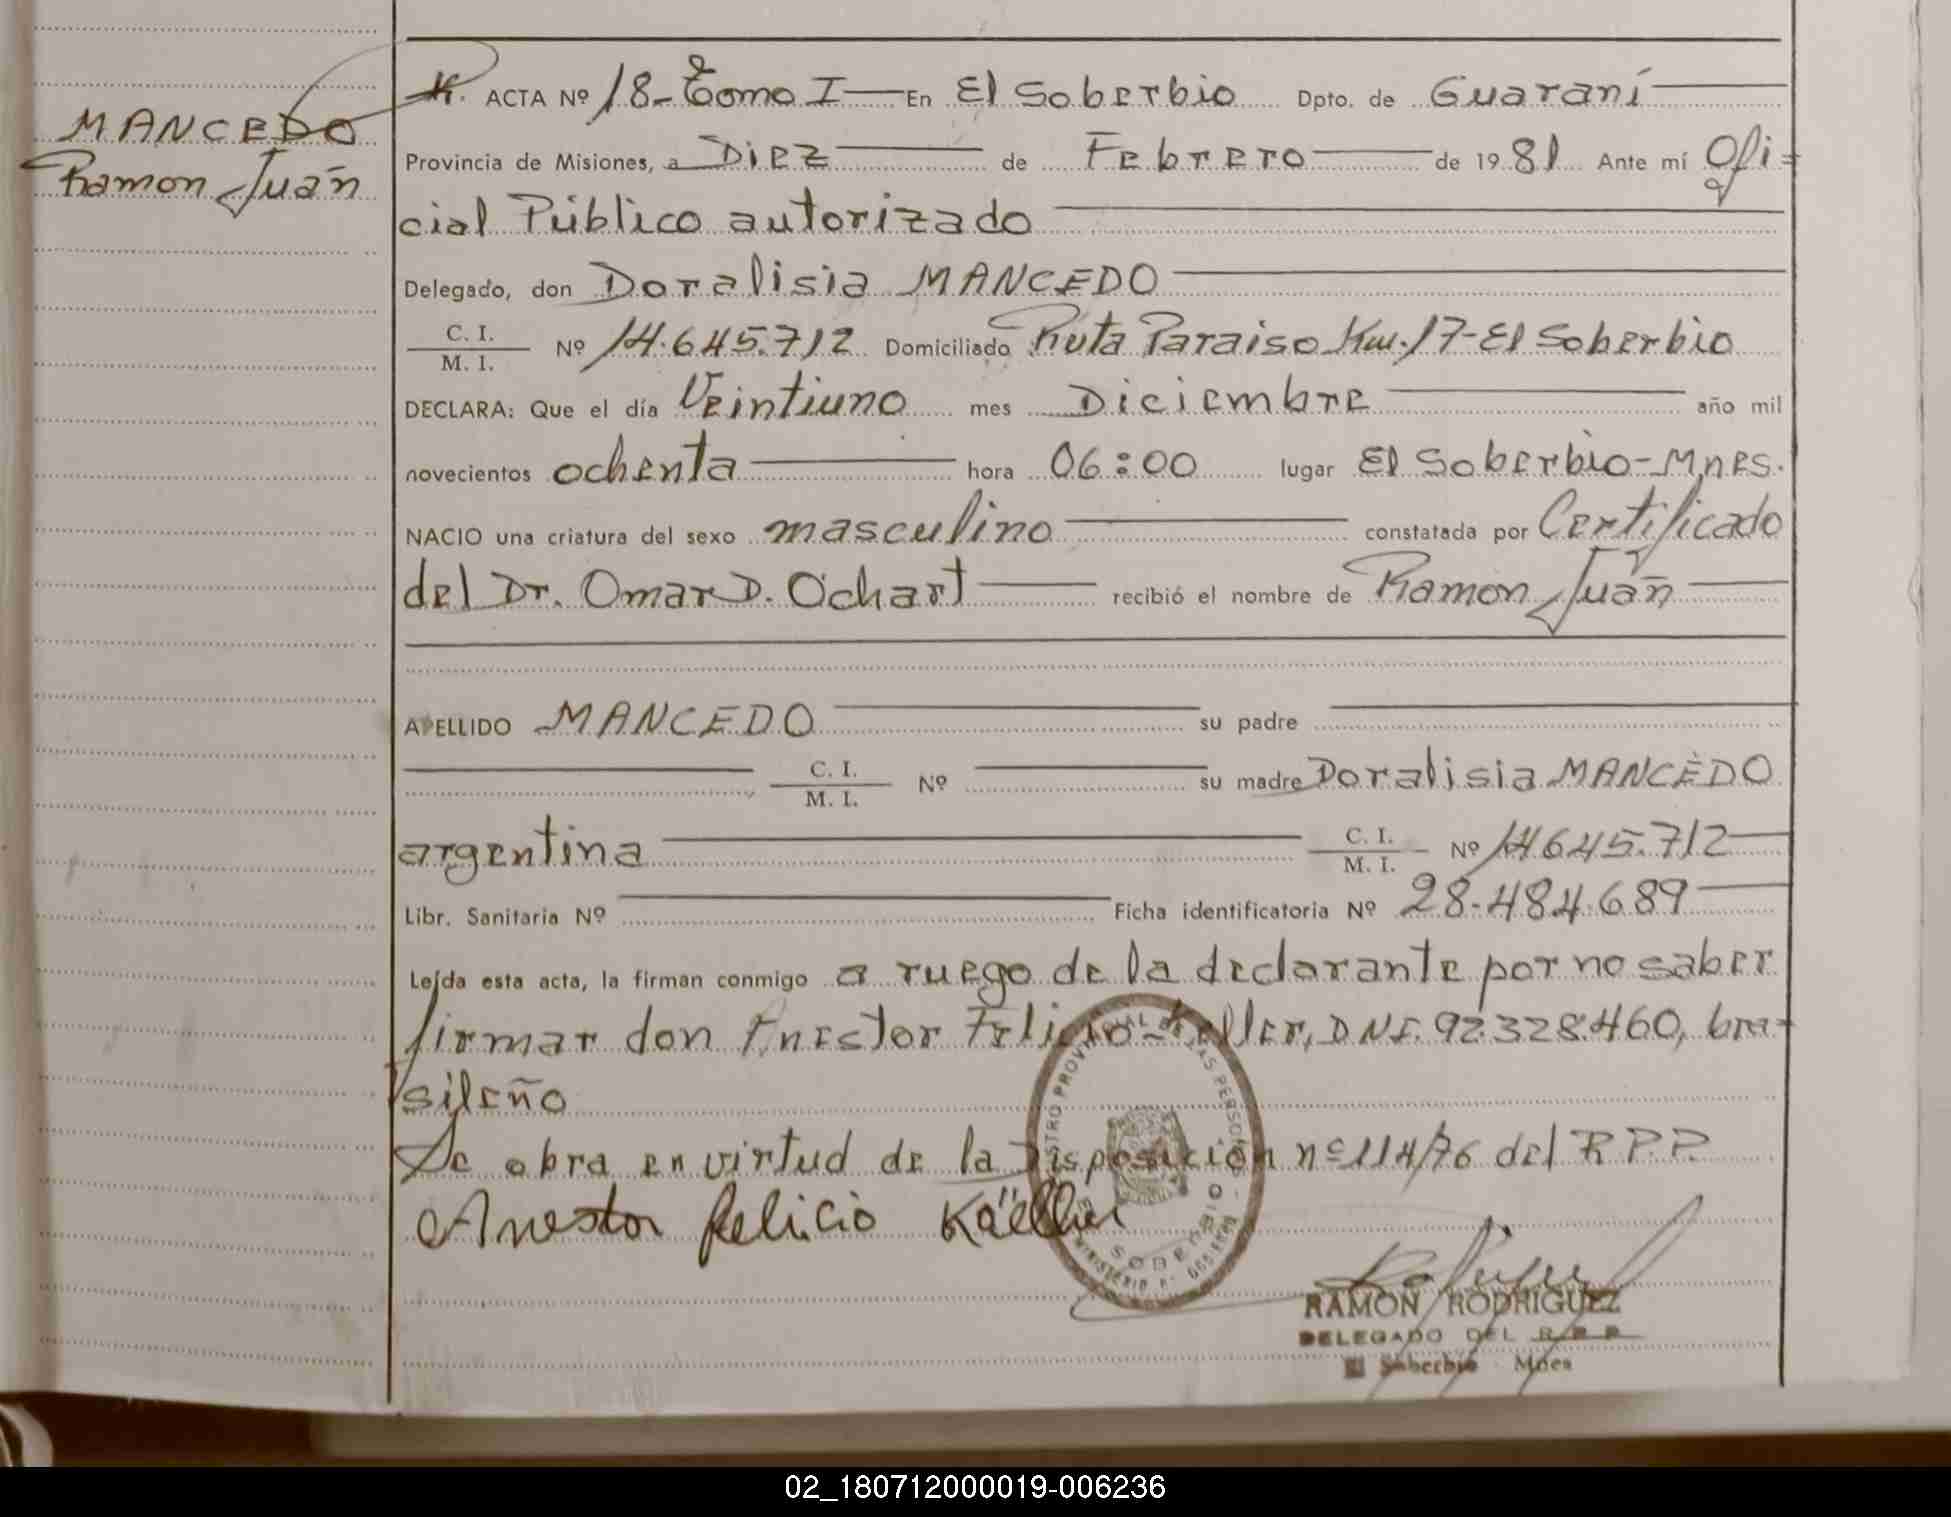 MANCEDO
Ramon Juan
ACTA Nº 18-Tomo I En El Soberbio Dpto. de Guaraní
Provincia de Misiones, a Diez de Febrero de 1981 Ante mí Ofi=
cial Público autorizado
Delegado, don Doralisia MANCEDO
C. I.
M. I. Nº 14.645.712 Domiciliado Ruta Paraiso Km. 17-El Soberbio
DECLARA: Que el día Veintiuno mes Diciembre año mil
novecientos ochenta hora 06:00 lugar El Soberbio-Mnes.
NACIO una criatura del sexo masculino constatada por Certificado
del Dr. Omar D. Ochart recibió el nombre de Ramon Juan
APELLIDO MANCEDO su padre
C. I.
M. I. Nº su madre Doralisia MANCEDO
argentina C. I.
M. I. Nº 14.645.712
Libr. Sanitaria Nº Ficha identificatoria Nº 28.484.689
Leída esta acta, la firman conmigo a ruego de la declarante por no saber
firmar don Felicio Keller, DNI. 92.328.460, bra-
sileño
Se obra en virtud de la Disposición nº 114/76 del R.P.P.
Anestor Felicio Käeller
REGISTRO PROVINCIAL DE LAS PERSONAS
EL SOBERBIO
MINISTERIO DE GOBIERNO
RAMON RODRIGUEZ
DELEGADO DEL R.P.P.
El Soberbio Mnes
02_180712000019-006236